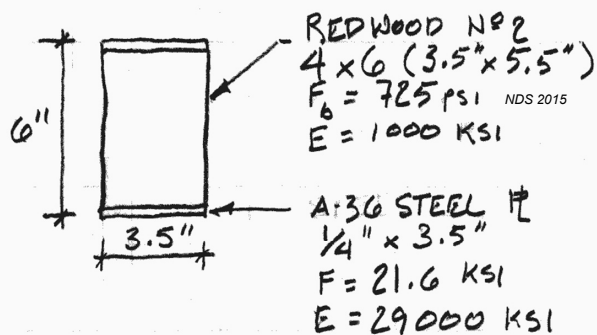 6"
3.5"
REDWOOD Nº 2
4 x 6 (3.5" x 5.5")
Fb = 725 psi NDS 2015
E = 1000 KSI
A-36 STEEL PL
1/4" x 3.5"
F = 21.6 KSI
E = 29000 KSI